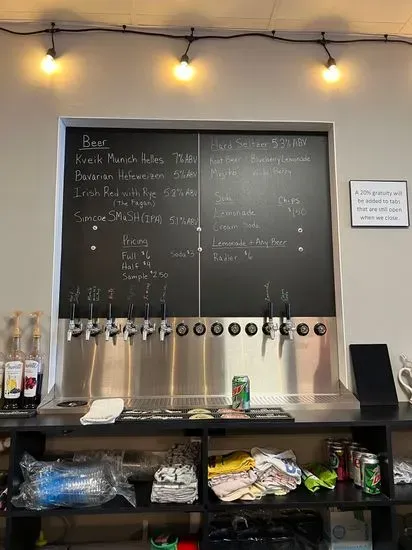 Beer
Kveik Munich Helles 7% ABV
Bavarian Hefeweizen 5% ABV
Irish Red with Rye 5.8% ABV
(The Pagan)
Simcoe SMaSH (IPA) 5.1% ABV
Pricing
Full $6
Half $4
Sample $2.50
Soda $3
Hard Seltzer 5.3% ABV
Root Beer Blueberry Lemonade
Mojito Berry
Soda
Lemonade
Cream Soda
Chips
Lemonade + Any Beer
Radler $6
A 20% gratuity will
be added to tabs
that are still open
when we close.